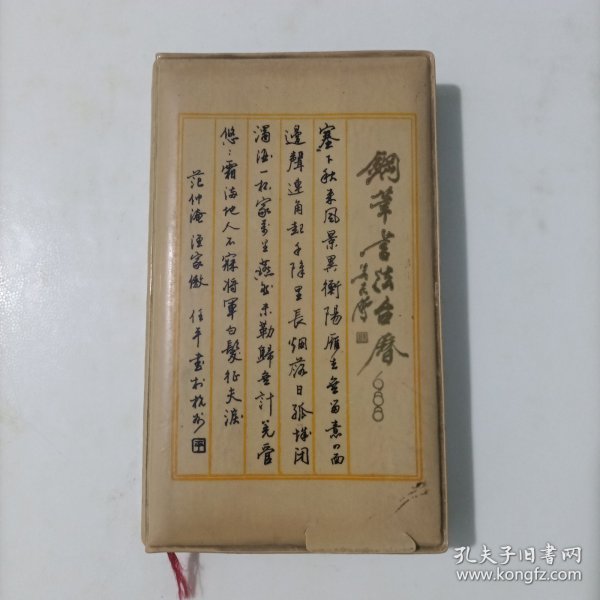 鋼筆書法台曆
塞下秋来風景異衡陽雁去無留意四面
邊聲連角起千嶂里長烟落日孤城闭
濁酒一杯家万里燕然未勒歸無計羌管
悠〻霜满地人不寐将軍白髮征夫淚
范仲淹 漁家傲 任平書於杭州
孔夫子旧书网
www.kongfz.com